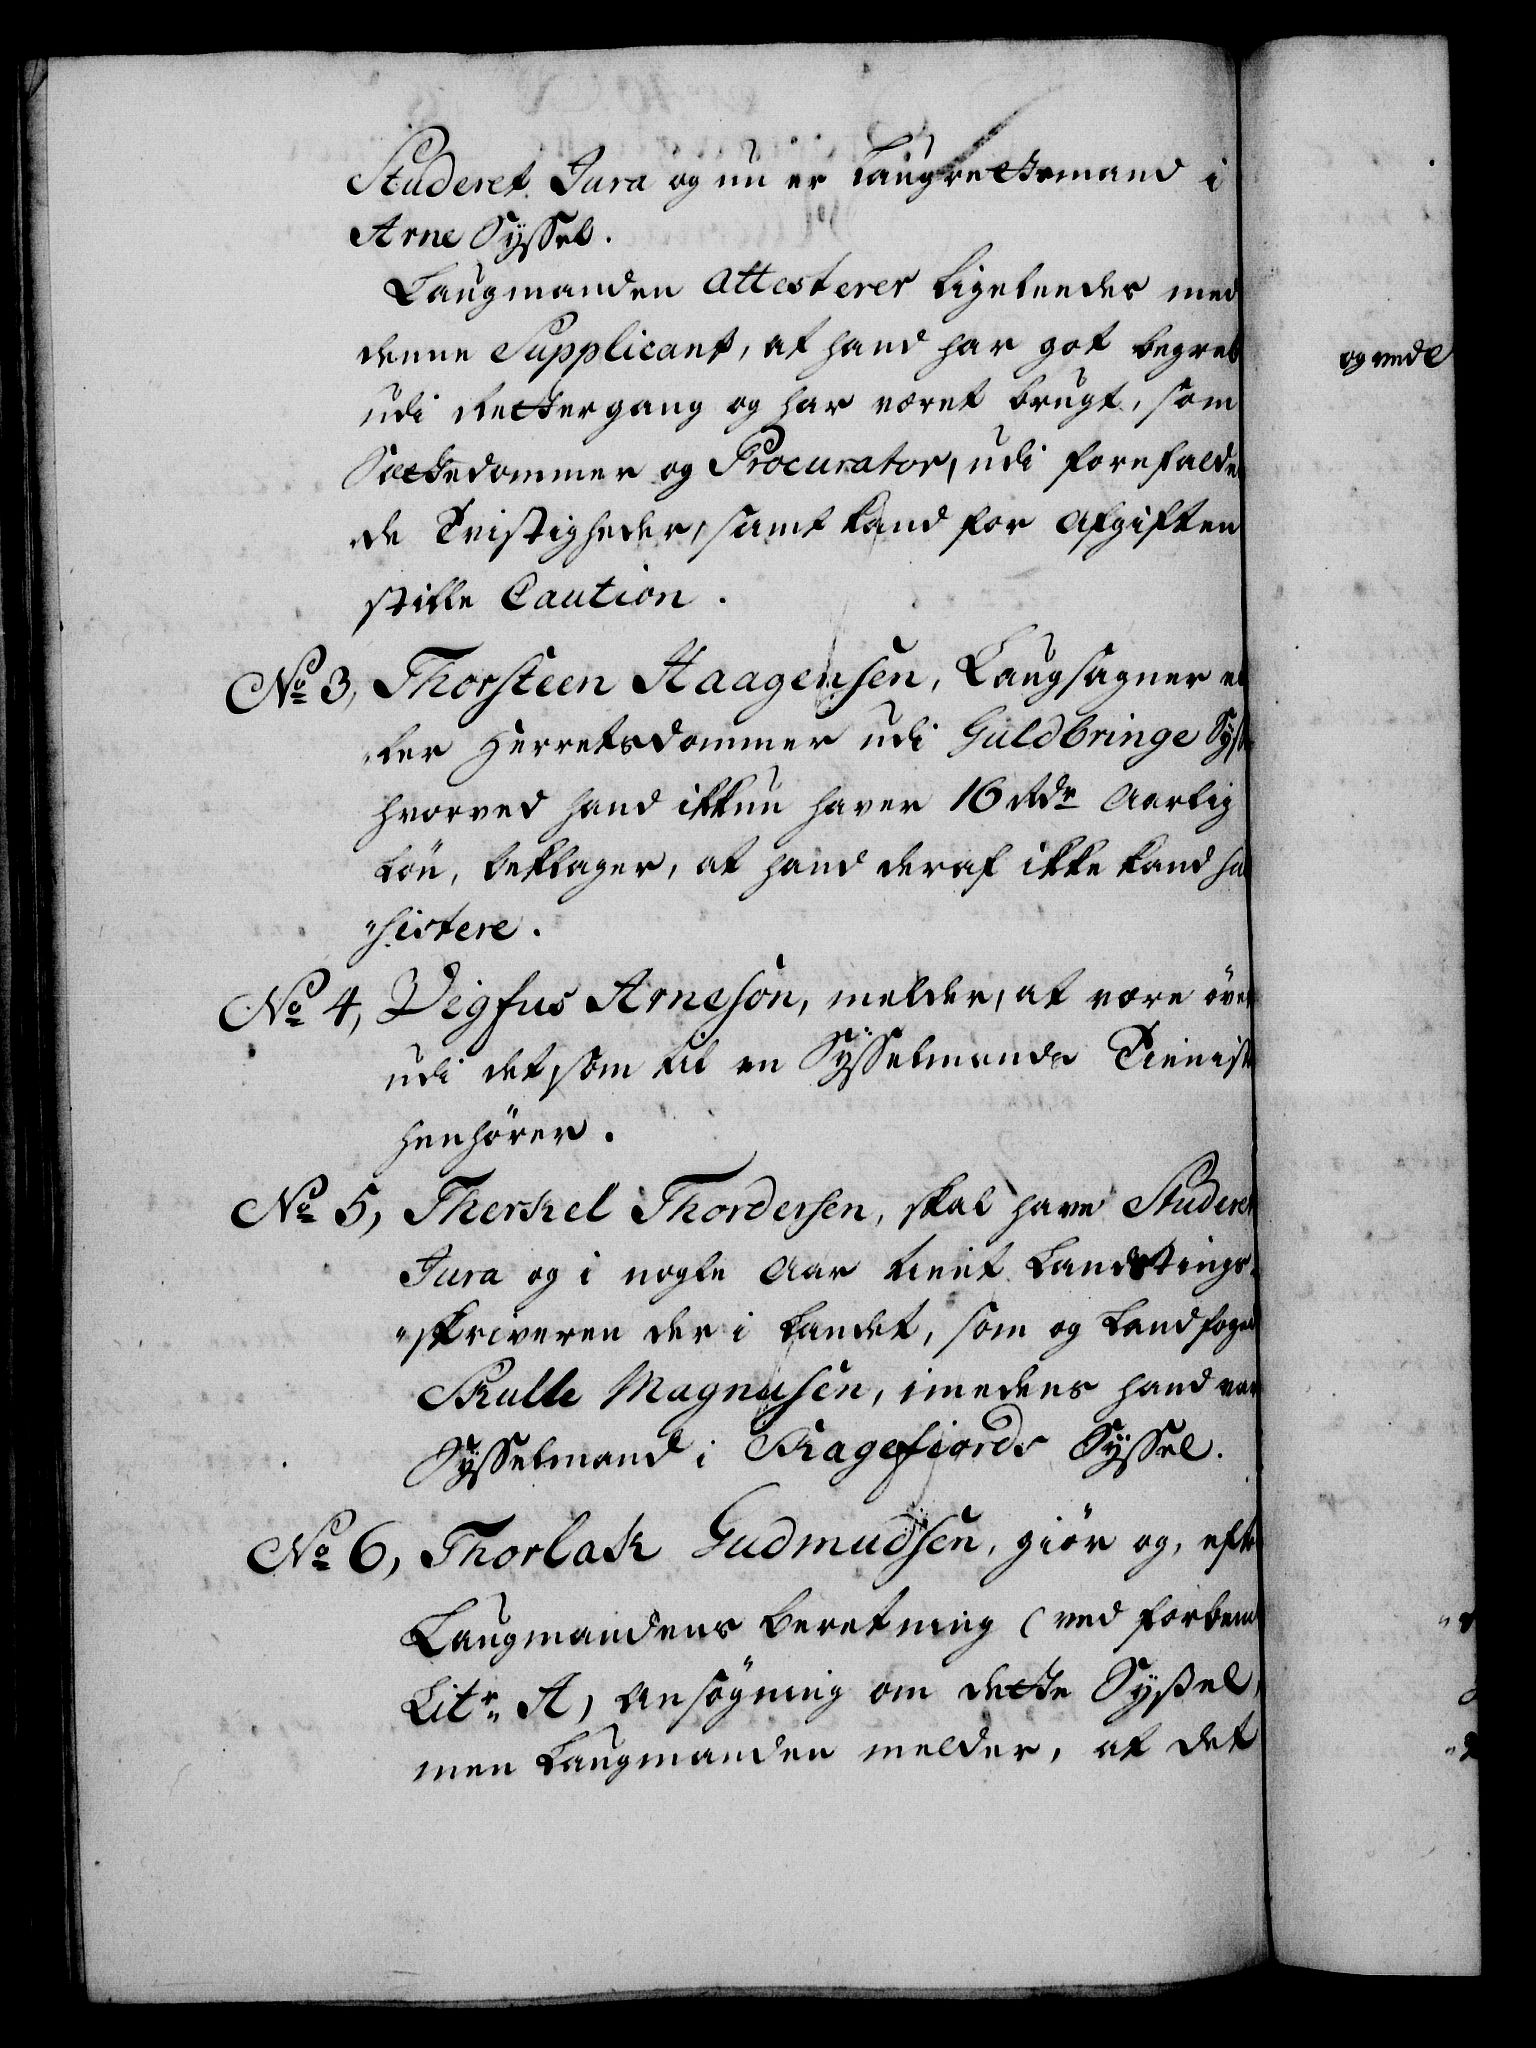 Studeret Jura og nu er Laugrettsmand i
Arne Syssel.
Laugmanden Attesterer ligeleedes med
denne Supplicant, at hand har got begreb
udi Rettergang og har været brugt, som
Sættedommer og Procurator, udi forefalde
de Tvistigheder, samt kand for Afgiften
stille Caution.
No 3, Thorsteen Haagensen, Laugsagner el
ler Herretsdommer udi Guldbringe Sys
hvorved hand ikkun haver 16 Rdr Aarlig
Lön, beklager, at hand deraf ikke kand su
"sistere.
No 4, Vigfus Arnesøn, melder, at være öve
udi det, som til en Sysselmands Tieniste
henhörer.
No 5, Therkel Thordersen, skal have Studeret
Jura og i nogle Aar tient Landstings
"skriveren der i Landet, som og Landfoged
Skulle Magnusen, imedens hand var
Sysselmand i Skagefiords Syssel.
No 6, Thorlak Gudmudsen, giör og, efter
Laugmandens Beretning (ved forbem
Litr. A) Ansögning om dette Syssel,
men Laugmanden melder, at det
og vedl